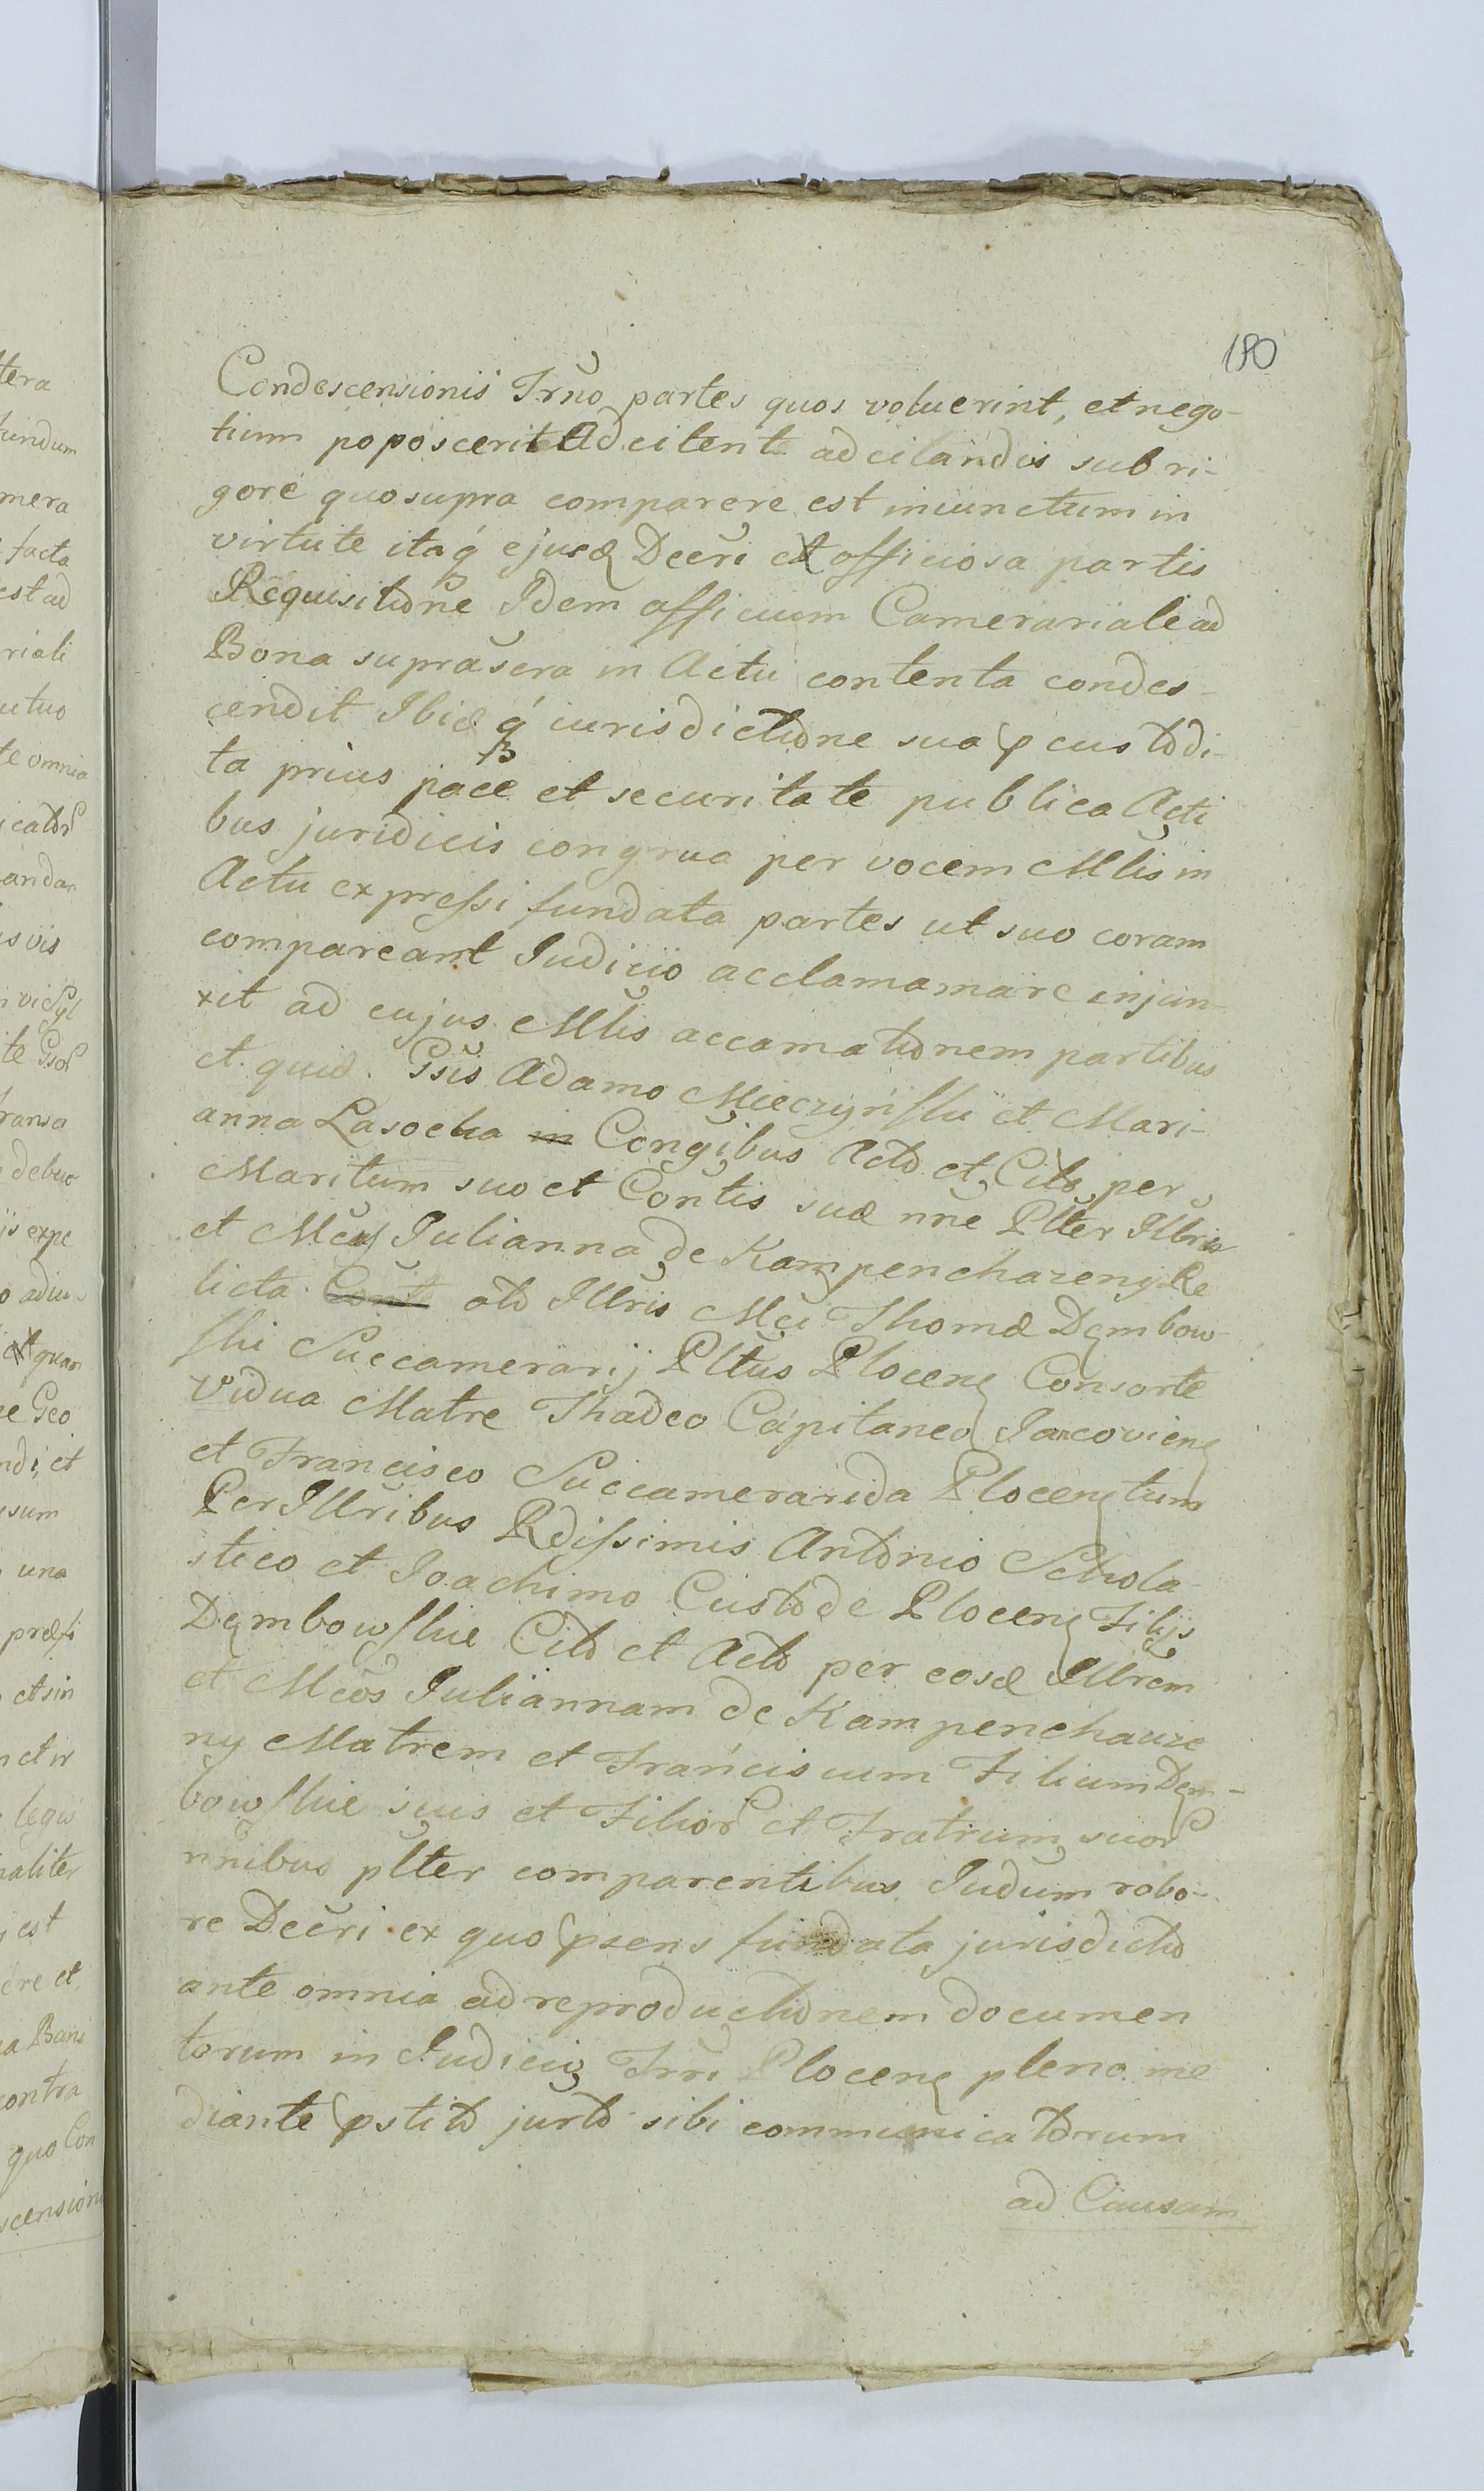 180
Condescensionis Trno partes quos voluerint, et nego-
tium poposcerit Adcitent adcitandis sub ri-
gore quo supra comparere est iniunctum in
virtute itaq ejusd Decri et officiosa partis
Requisitione Idem officium Camerariale ad
Bona suprascra in Actu contenta condes-
cendit Ibid q iurisdictione sua p custodi-
ta prius pace et securitate publica Acti
bus juridicis congrua per vocem Mlis in
Actu expressi fundata partes ut suo coram
compareant Judicio acclamamare injun-
xit ad cujus Mlis accamationem partibus
et quid. Gsis Adamo Mieczynski et Mari-
anna Lasocka in Congibus Acto et Cito per
Maritum suo et Contis suæ nne Plter Illris
et Mca Julianna de Kampenchazeny Re
licta Cont oto Illris Mci Thomæ Dembow-
ski Succamerarij Pltus Plocens Consorte
Vidua Matre Thadeo Capitaneo Jacoviens
et Francisco Succamerarida Plocens tum
Per Illribus Rdissimis Antonio Schola-
stico et Joachimo Custode Plocens Filijs
Dembowskie Cito et Acto per eosd Illrem
et Mcos Juliannam de Kampenchauze
ny Matrem et Franciscum Filium Dem-
bowskie suis et Filior et Fratrum suor
nnibus plter comparentibus Judum robo-
re Decri ex quo psens fundata jurisdictio
ante omnia ad reproductionem documen
torum in Judicio Trri Plocens pleno me
diante pstito jurto sibi communicatorum
ad Causam